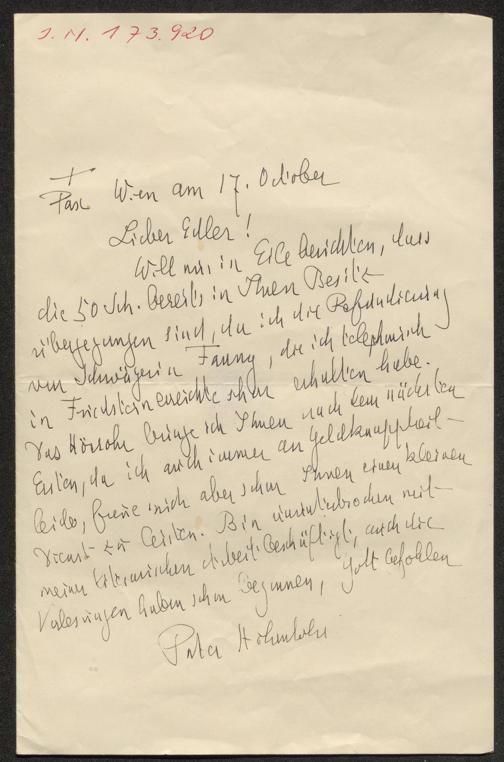 J.N. 173.920
+
Pax Wien am 17. October
Lieber Edler!
Will nur in Eile berichten, dass
die 50 Sch. bereits in Ihren Besitz
übergegangen sind, da ich die Refundierung
von Schwägerin Fanny, die ich telephonisch
in Friedstein erreichte schon erhalten habe.
Das bringe ich Ihnen nach dem nächsten
Ersten, da ich auch immer an Geldknappheit
leide, freue mich aber schon Ihnen einen kleinen
Dienst zu leisten. Bin ununterbrochen mit
meiner literarischen Arbeit beschäftigt, auch die
Vorlesungen haben schon begonnen, Gott befohlen
Pater Hohenlohe